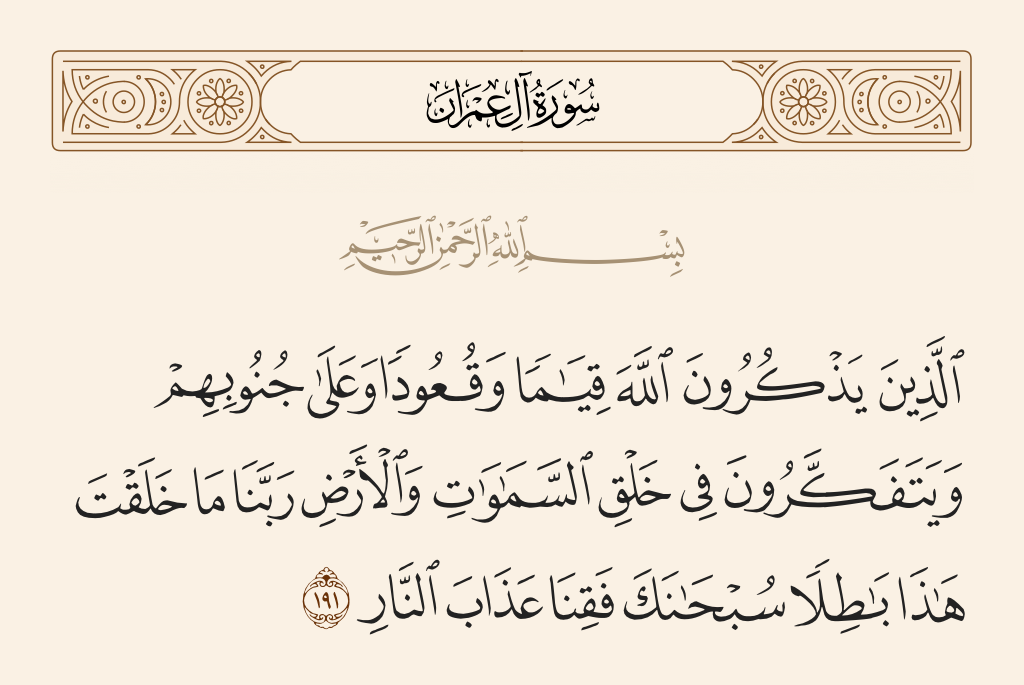 سُورَةُ آلِ عِمْرَان
بِسْمِ ٱللَّهِ ٱلرَّحْمَٰنِ ٱلرَّحِيمِ
ٱلَّذِينَ يَذْكُرُونَ ٱللَّهَ قِيَٰمًا وَقُعُودًا وَعَلَىٰ جُنُوبِهِمْ
وَيَتَفَكَّرُونَ فِى خَلْقِ ٱلسَّمَٰوَٰتِ وَٱلْأَرْضِ رَبَّنَا مَا خَلَقْتَ
هَٰذَا بَٰطِلًا سُبْحَٰنَكَ فَقِنَا عَذَابَ ٱلنَّارِ ١٩١